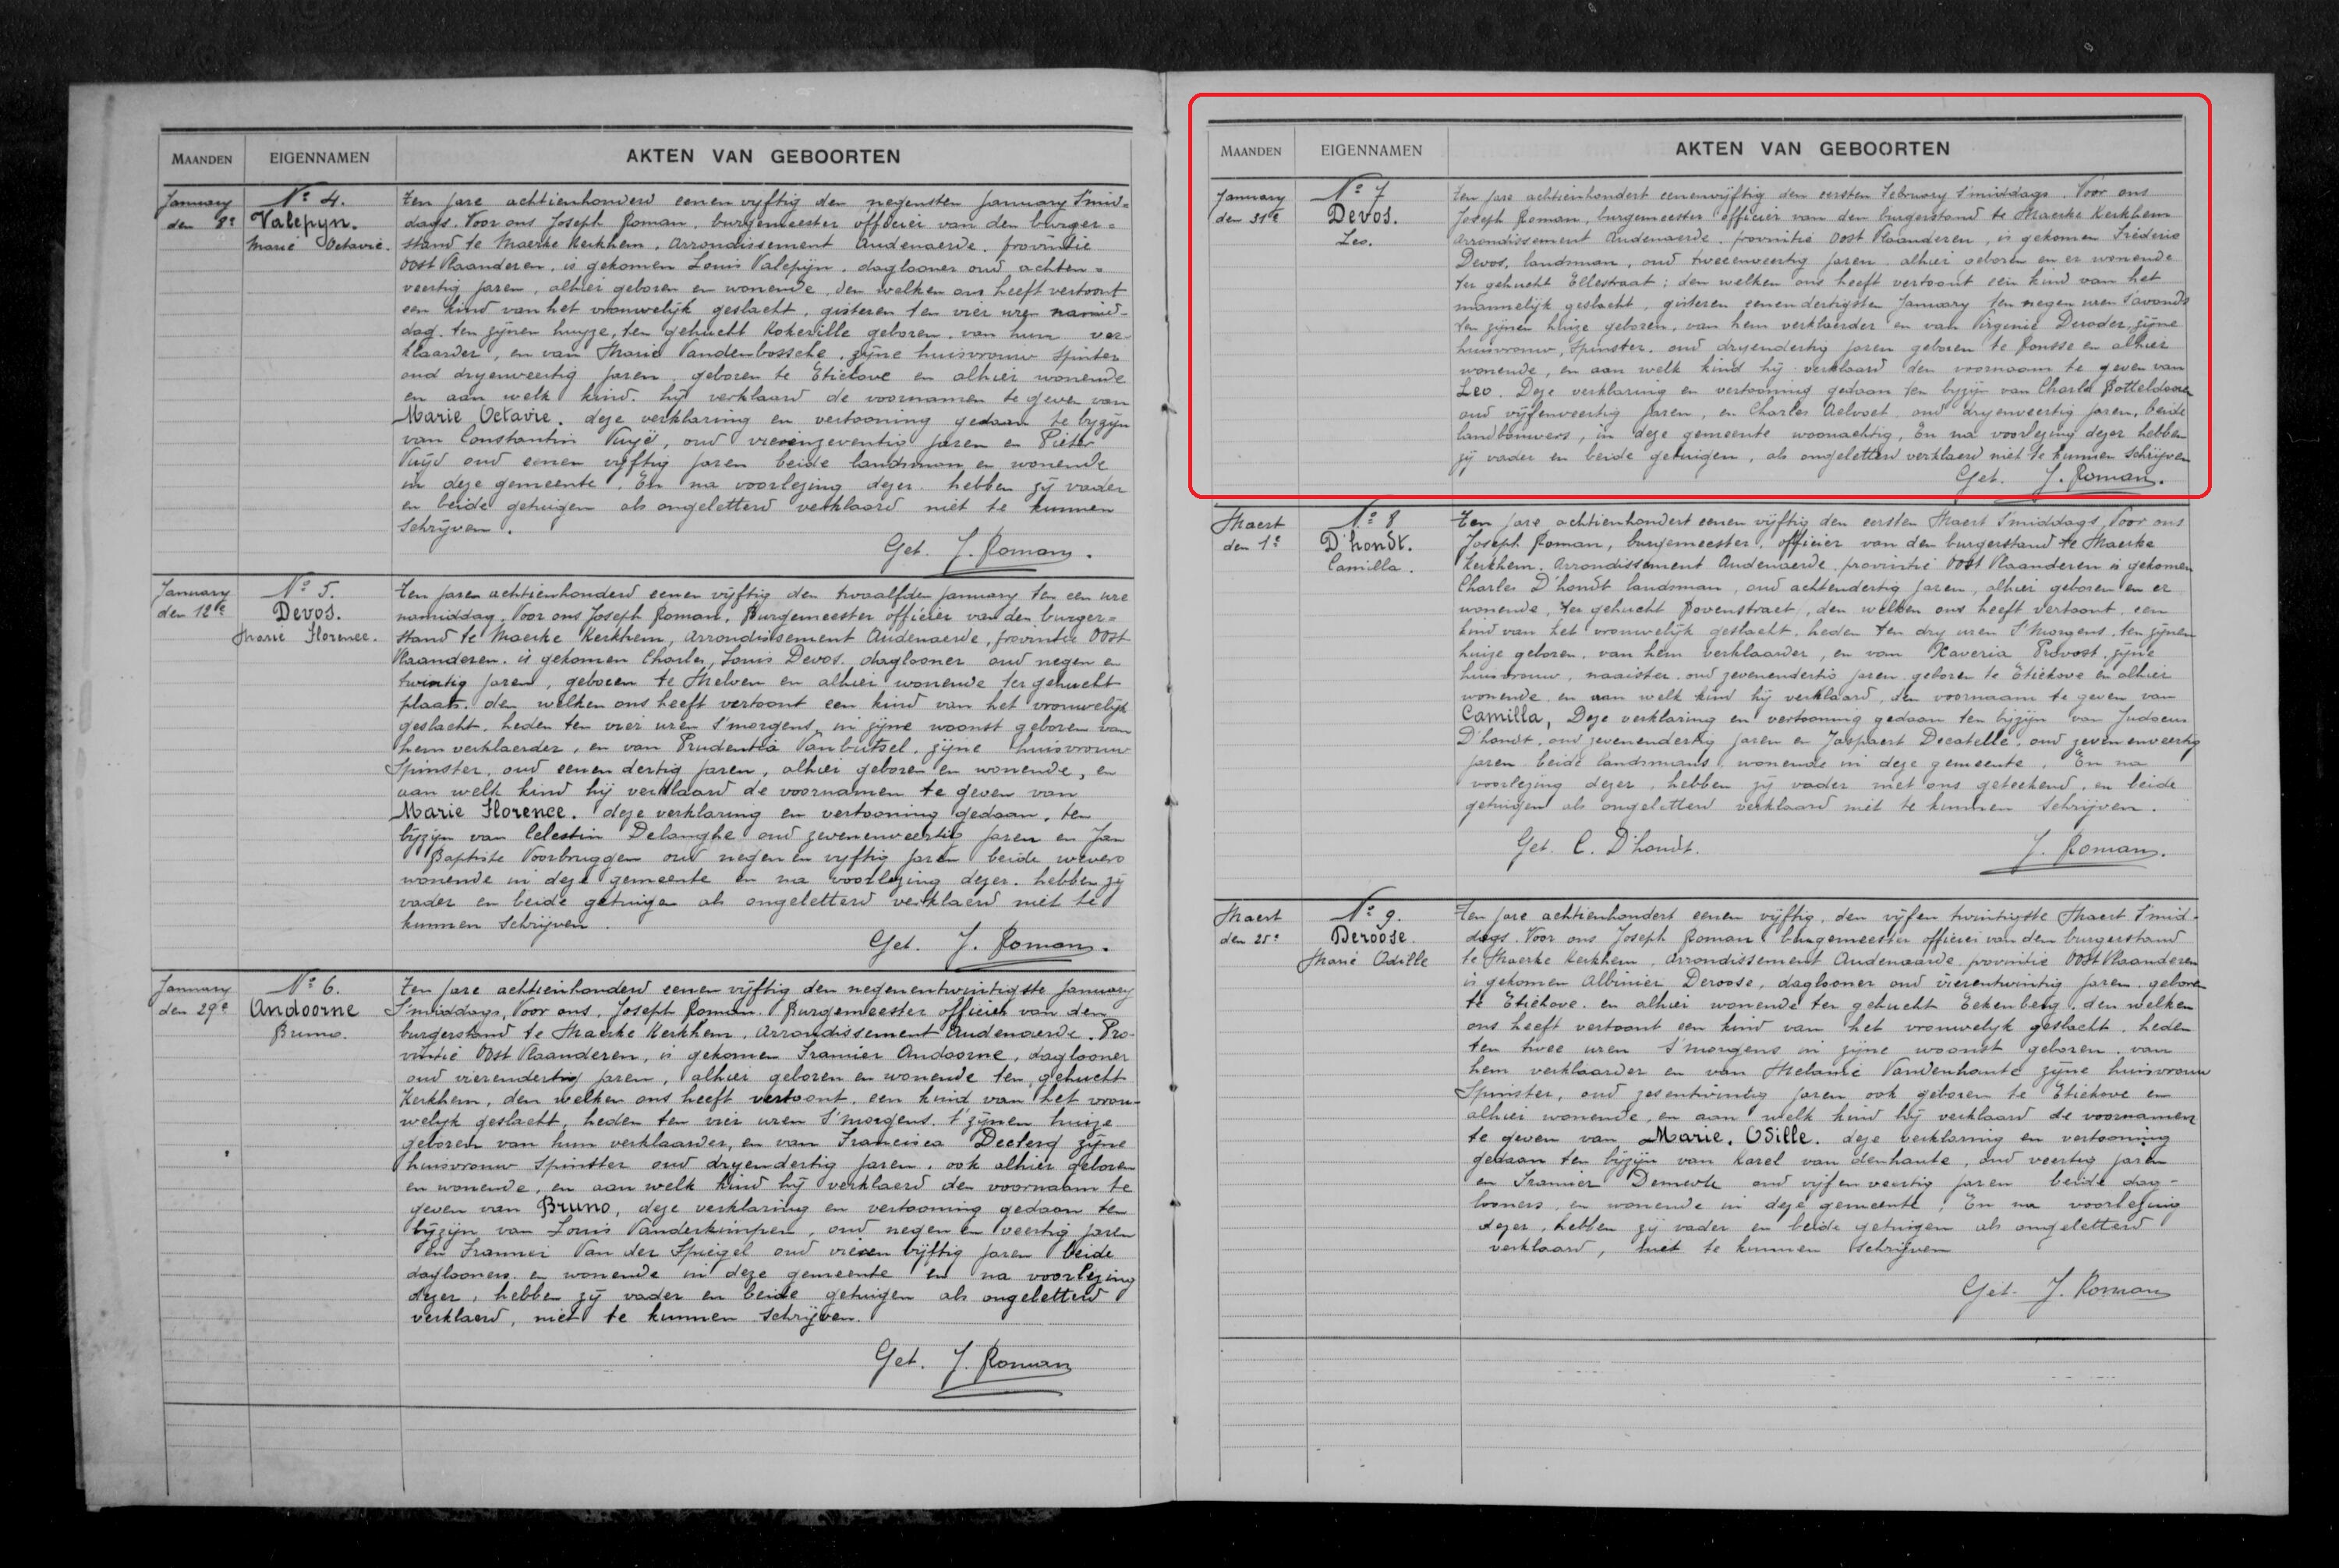 MAANDEN EIGENNAMEN AKTEN VAN GEBOORTEN
January
den 9e
No 4.
Valepyn.
Marie Octavie.
Ten jare achtienhonderd eenen vyftig den negensten January S'mid=
dags. Voor ons Joseph Roman, burgemeester officier van den burger=
stand te Maerke Kerkhem, Arrondissement Audenaerde, provintie
Oost Vlaanderen, is gekomen Louis Valepijn, daglooner oud achten=
veertig jaren, alhier geboren en wonende, den welken ons heeft vertoont
een kind van het vrouwelijk geslacht, gisteren ten vier uren namid-
dag ten zijnen huyze, ten gehucht Kokerille geboren, van hem ver-
klaarder, en van Marie Vandenbossche, zijne huisvrouw Spinster
oud dryenveertig jaren, geboren te Etichove en alhier wonende
en aan welk kind. hij verklaard de voornamen te geven van
Marie Octavie. deze verklaring en vertooning gedaan te byzijn
van Constantin, oud vierenzeventig jaren en Pieter
oud eenen vyftig jaren beide landsman en wonende
in deze gemeente. En na voorlezing dezer. hebben zij vader
en beide getuigen als ongeletterd verklaard niet te kunnen
Schrijven.
Get. J. Roman.
January
den 12te
No 5.
Devos.
Marie Florence.
Ten jaren achtienhonderd eenen vijftig den twaalfden january ten een ure
namiddag, Voor ons Joseph Roman, Burgemeester officier van den burger=
stand te Maerke Kerkhem, Arrondissement Audenaerde, provintie Oost
Vlaanderen. is gekomen Charles, Louis Devos, daglooner oud negen en
twintig jaren, geboren te Melven en alhier wonende ter gehucht
plaats. den welken ons heeft vertoont een kind van het vrouwelijk
geslacht. heden ten vier uren s'morgens, in zijne woonst geboren van
hem verklaerder, en van Prudentia Vanbutsel, zijne huisvrouw
Spinster, oud eenen dertig jaren, alhier geboren en wonende, en
aan welk kind hij verklaard de voornamen te geven van
Marie Florence. deze verklaring en vertooning gedaan, ten
bijzijn van Celestin Delanghe oud zevenenveertig jaren en Jan
Baptiste Voorbruggen oud negen en vyftig jaren beide wevers
wonende in deze gemeente en na voorlezing dezer. hebben zij
vader en beide getuigen als ongeletterd verklaerd niet te
kunnen schrijven.
Get. J. Roman.
January
den 29e
No 6.
Andoorne
Bruno.
Ten jare achtienhonderd eenen vijftig den negenentwintigste January
S'middags, Voor ons, Joseph Roman. Burgemeester officier van den
burgerstand te Maerke Kerkhem, Arrondissement Audenaerde. Pro-
vintie Oost Vlaanderen, is gekomen Andoorne, daglooner
oud vierendertig jaren, alhier geboren en wonende ten gehucht
Kerkhem, den welken ons heeft vertoont, een kind van het vrou-
welyk geslacht, heden ten vier uren S'morgens. t'zijnen huize
geboren van hem verklaarder, en van Francisca zijne
huisvrouw spinster oud dryendertig jaren. ook alhier geboren
en wonende, en aan welk kind hij verklaerd den voornaam te
geven van Bruno, deze verklaring en vertooning gedaan ten
bijzijn van Louis Vanderkimpen, oud negen en veertig jaren
en Van der Spiegel oud vieren vijftig jaren beide
daglooners en wonende in deze gemeente en na voorlezing
dezer, hebben zij vader en beide getuigen als ongeletterd
verklaerd, niet te kunnen schrijven.
Get. J. Roman
MAANDEN EIGENNAMEN AKTEN VAN GEBOORTEN
January
den 31te
No 7
Devos.
Leo.
Ten jare achtienhondert eenenvijftig den eersten February S'middags. Voor ons
Joseph Roman, burgemeester officier van den burgerstand te Maerke Kerkhem
Arrondissement Audenaerde. provintie Oost Vlaanderen, is gekomen Fréderic
Devos, landsman, oud tweeenveertig jaren alhier geboren en er wonende
ter gehucht Ellestraat; den welken ons heeft vertoont een kind van het
mannelijk geslacht, gisteren eenendertigsten January ten negen uren s'avonds
ten zijnen huize geboren, van hem verklaerder en van Virginie Deroder, zijne
huisvrouw, Spinster. oud dryendertig jaren geboren te Ronsse en alhier
wonende, en aan welk kind hij verklaard den voornaam te geven van
Leo. Deze verklaring en vertooning gedaan ten byzijn van Charles Botteldoorn
oud vijfenveertig jaren, en Charles Aelvoet oud dryenveertig jaren, beide
landbouwers, in deze gemeente woonachtig, En na voorlezing dezer hebben
zij vader en beide getuigen, als ongeletterd verklaerd niet te kunnen schrijven
Get. J. Roman.
Maert
den 1e
No 8
D'hondt.
Camilla.
Ten jare achtienhondert eenen vijftig den eersten Maert S'middags, Voor ons
Joseph Roman, burgemeester, officier van den burgerstand te Maerke
Kerkhem. Arrondissement Audenaerde, provintie Oost Vlaanderen is gekomen
Charles D'hondt landsman, oud achtendertig jaren, alhier geboren en er
wonende, ter gehucht Bovenstraet, den welken ons heeft vertoont, een
kind van het vrouwelijk geslacht, heden ten dry uren S'morgens, ten zijnen
huize geboren, van hem verklaarder, en van Xaveria Provost, zijne
huisvrouw, naaister, oud zevenendertig jaren geboren te Etichove en alhier
wonende en aan welk kind hij verklaard, den voornaam te geven van
Camilla, Deze verklaring en vertooning gedaan ten bijzijn van Judocus
D'hondt, oud zevenendertig jaren en Jaspaert Decatelle, oud zevenenveertig
jaren beide landsmans, wonende in deze gemeente, En na
voorlezing dezer, hebben zij vader met ons geteekend, en beide
getuigen als ongeletterd verklaard niet te kunnen schrijven.
Get. C. D'hondt. J. Roman.
Maert
den 25e
No 9.
Deroose
Marie Odille
Ten jare achtienhondert eenen vijftig, den vijfen twintigste Maert S'mid-
dags. Voor ons Joseph Roman burgemeester officier van den burgerstand
te Maerke Kerkhem, Arrondissement Audenaarde. provintie Oost Vlaanderen
is gekomen Albinier Deroose, daglooner oud vierentwintig jaren, geboren
te Etichove. en alhier wonende ter gehucht Eekenberg, den welken
ons heeft vertoont een kind van het vrouwelyk geslacht, heden
ten twee uren s'morgens in zijne woonst geboren, van
hem verklaarder en van Melanie Vandenhoute zijne huisvrouw
Spinster, oud zesentwintig jaren, ook geboren te Etichove en
alhier wonende, en aan welk kind hij verklaard de voornamen
te geven van Marie. Odille. deze verklaring en vertooning
gedaan ten bijzijn van Karel van denhaute, oud veertig jaren
en oud vijfenveertig jaren beide dag-
looners, en wonende in deze gemeente, En na voorlezing
dezer, hebben zij vader en beide getuigen als ongeletterd
verklaard, niet te kunnen schrijven
Get. J. Roman